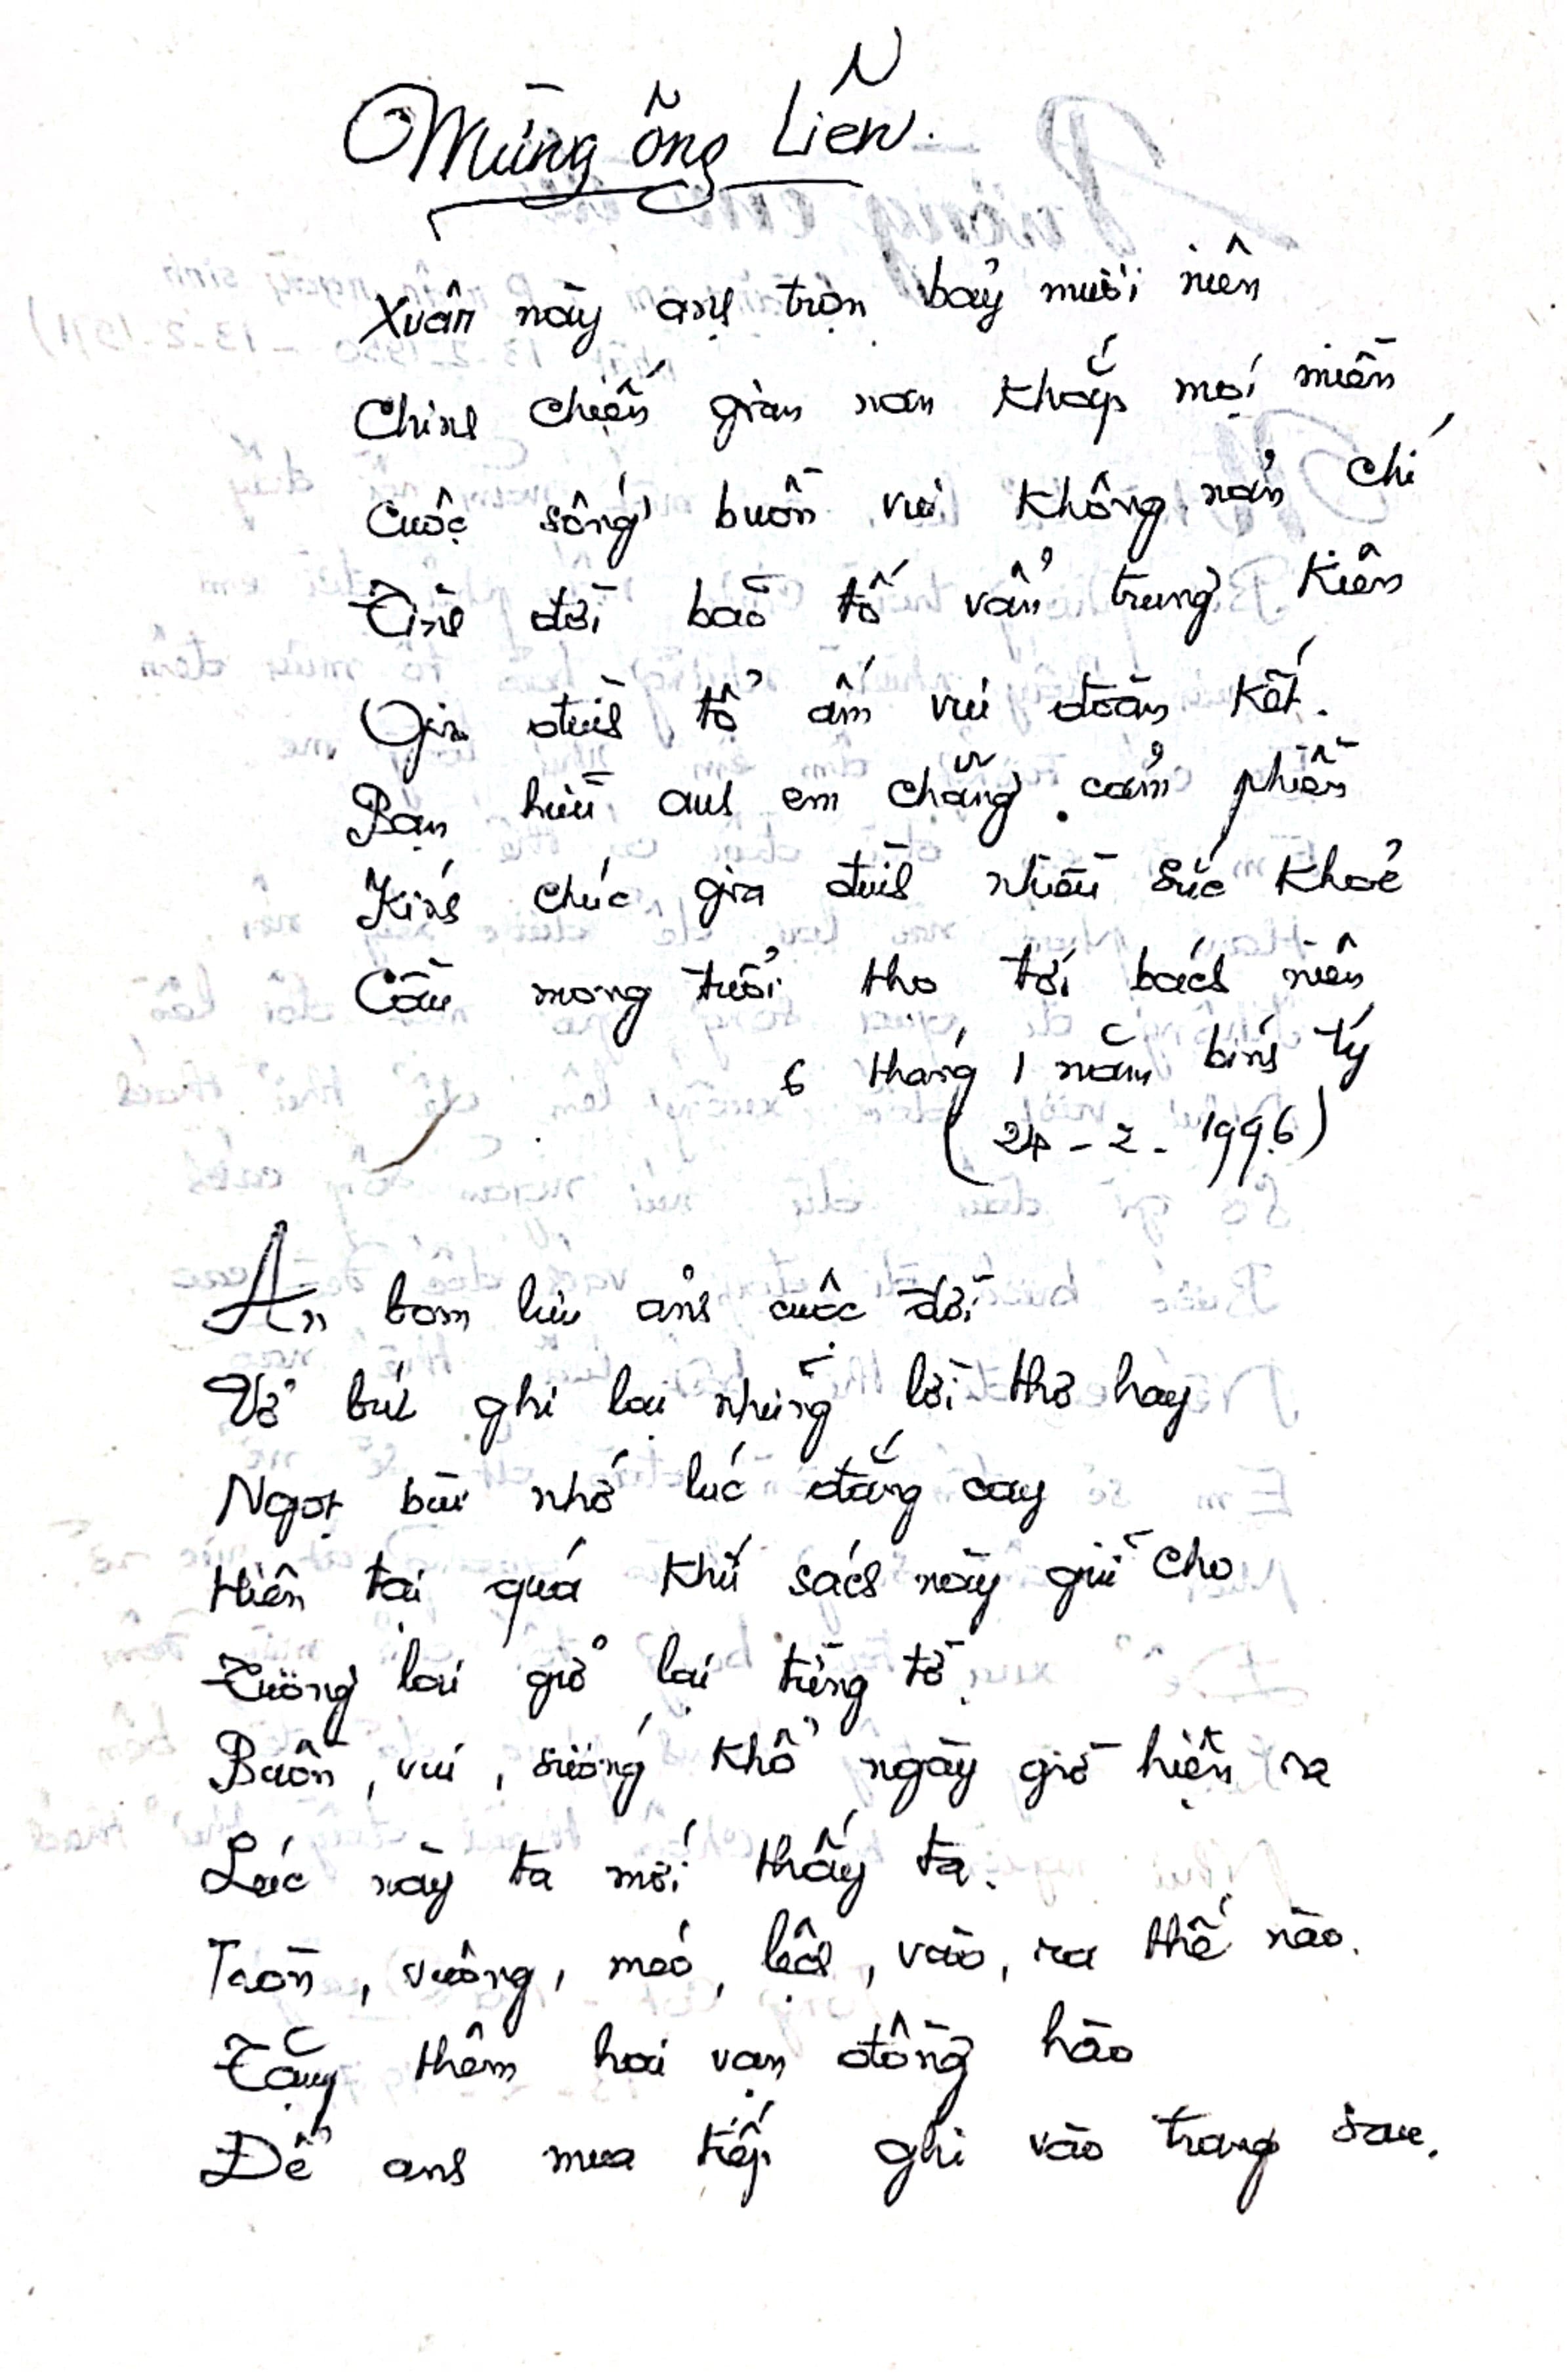 Mừng ông Liên.
Xuân này anh trọn bảy mươi niên
Chinh chiến gian nan khắp mọi miền
Cuộc sống buồn vui không nản chí
Tình đời bão tố vẫn trung kiên
Gia đình tổ ấm vui đoàn kết.
Bạn hữu anh em chẳng cảm phiền
Kính chúc gia đình nhiều sức khoẻ
Cầu mong tuổi thọ tới bách niên
6 tháng 1 năm bính tý
(24-2-1996)
An bom lưu ảnh cuộc đời
Vở bút ghi lại những lời thơ hay
Ngọt bùi nhớ lúc đắng cay
Hiện tại quá khứ sách này giữ cho
Tương lai giở lại từng tờ
Buồn, vui, sướng khổ ngày giờ hiện ra
Lúc này ta mới thấy ta.
Tròn, vuông, méo, lệch, vào, ra thế nào.
Tặng thêm hai vạn đồng hào
Để anh mua tiếp ghi vào trang sau.